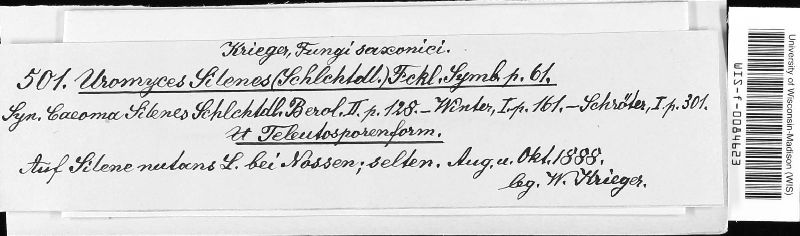 Krieger, Fungi saxonici.
501. Uromyces Silenes (Schlchtdl.) Fckl. Symb. p. 61.
Syn. Caeoma Silenes Schlchtdl. Berol. II. p. 128. – Winter, I. p. 161. – Schröter, I. p. 301.
U. Teleutosporenform.
Auf Silene nutans L. bei Nossen; selten. Aug. u. Okt. 1888.
leg. W. Krieger.
University of Wisconsin-Madison (WIS)
WIS-f-0084623